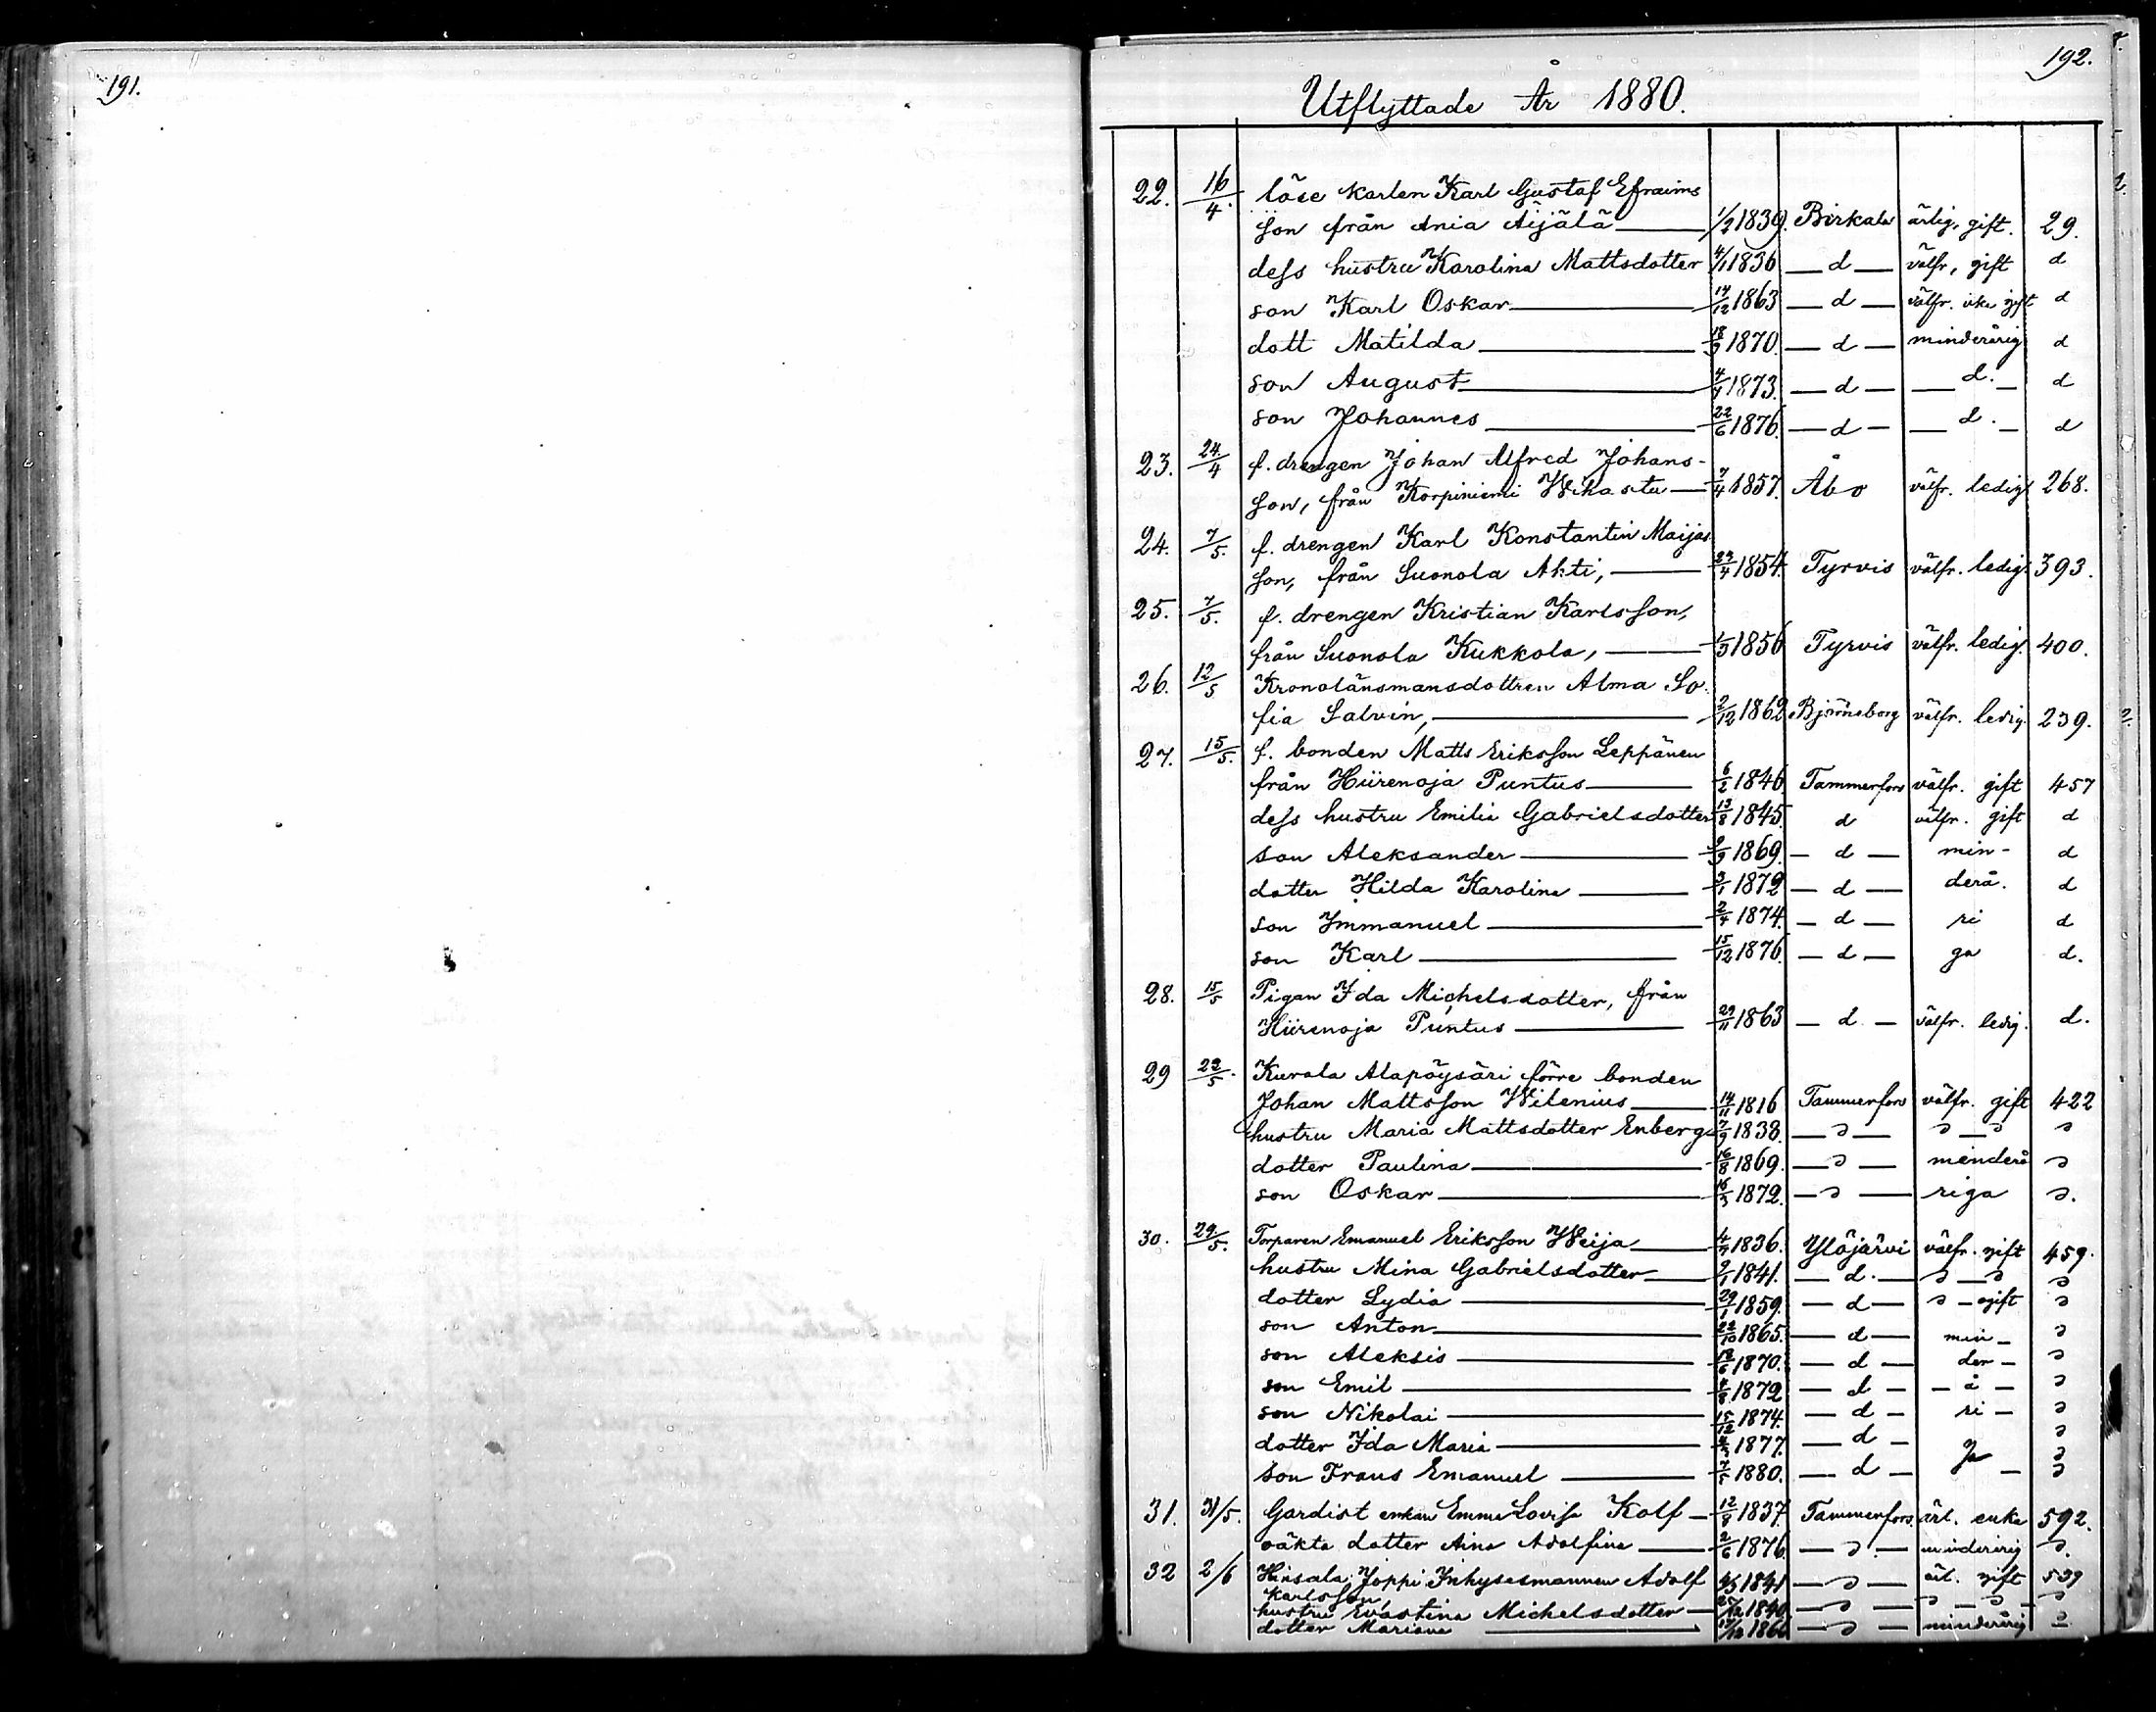 191.
192.
Utflyttade År 1880.
22. 16/4. löse karlen Karl Gustaf Efraims
son från Ania Äijälä 1/2 1839. Birkala ärlig, gift. 29.
dess hustru Karolina Mattsdotter 4/1 1836 d välfr, gift d
son Karl Oskar 14/12 1863 d välfr. icke gift d
dott Matilda 18/9 1870. d minderårig d
son August 4/4 1873. d d. d
son Johannes 22/6 1876. d d. d
23. 24/4 f. drengen Johan Alfred Johans-
son, från Korpiniemi Wihastu 7/4 1857. Åbo välfr. ledig 268.
24. 7/5. f. drengen Karl Konstantin Maijas
son, från Suonola Ahti, 23/4 1854. Tyrvis välfr. ledig. 393.
25. 7/5. f. drengen Kristian Karlsson,
från Suonola Kukkola, 1/3 1856 Tyrvis välfr. ledig. 400.
26. 12/5 Kronolänsmansdottren Alma So-
fia Salvin, 2/12 1862 Björneborg välfr. ledig. 239.
27. 15/5. f. bonden Matts Eriksson Leppänen
från Hiirenoja Puntus 6/2 1846 Tammerfors välfr. gift 457
dess hustru Emilia Gabrielsdotter 13/8 1845. d välfr. gift d
son Aleksander 9/9 1869. d min- d
dotter Hilda Karolina 3/1 1872 d derå. d
son Immanuel 2/4 1874. d ri d
son Karl 15/12 1876. d ga d.
28. 15/5 Pigan Ida Michelsdotter, från
Hiirenoja Puntus 29/11 1863 d välfr. ledig. d.
29 22/5. Kurala Alapöysäri förre bonden
Johan Mattsson Wilenius 14/11 1816 Tammerfors välfr. gift 422
hustru Maria Mattsdotter Enberg 7/9 1838. d d d d
dotter Paulina 16/8 1869. d minderå d
son Oskar 16/3 1872. d riga d.
30. 29/5. Torparen Emanuel Eriksson Weija 4/7 1836. Ylöjärvi välfr. gift 459.
hustru Mina Gabrielsdotter 9/1 1841. d. d d d
dotter Lydia 29/1 1859. d d ogift d
son Anton 22/10 1865. d min- d
son Aleksis 18/6 1870. d der- d
son Emil 4/8 1872 d å d
son Nikolai 15/12 1874. d ri- d
dotter Ida Maria 1877. d ga d
son Frans Emanuel 7/5 1880. d d
31. 31/5. Gardist enkan Emma Lovisa Kolf 12/8 1837. Tammerfors. ärl. enka 592.
oäkta dotter Aina Adolfina 2/6 1876. d minderårig d.
32 2/6 Hinsala Joppi Inhysesmannen Adolf 1841 d ärl. gift 539
Karlsson,
hustru Evastina Michelsdotter 1840 d d d d
dotter Mariana 1866 d minderårig d